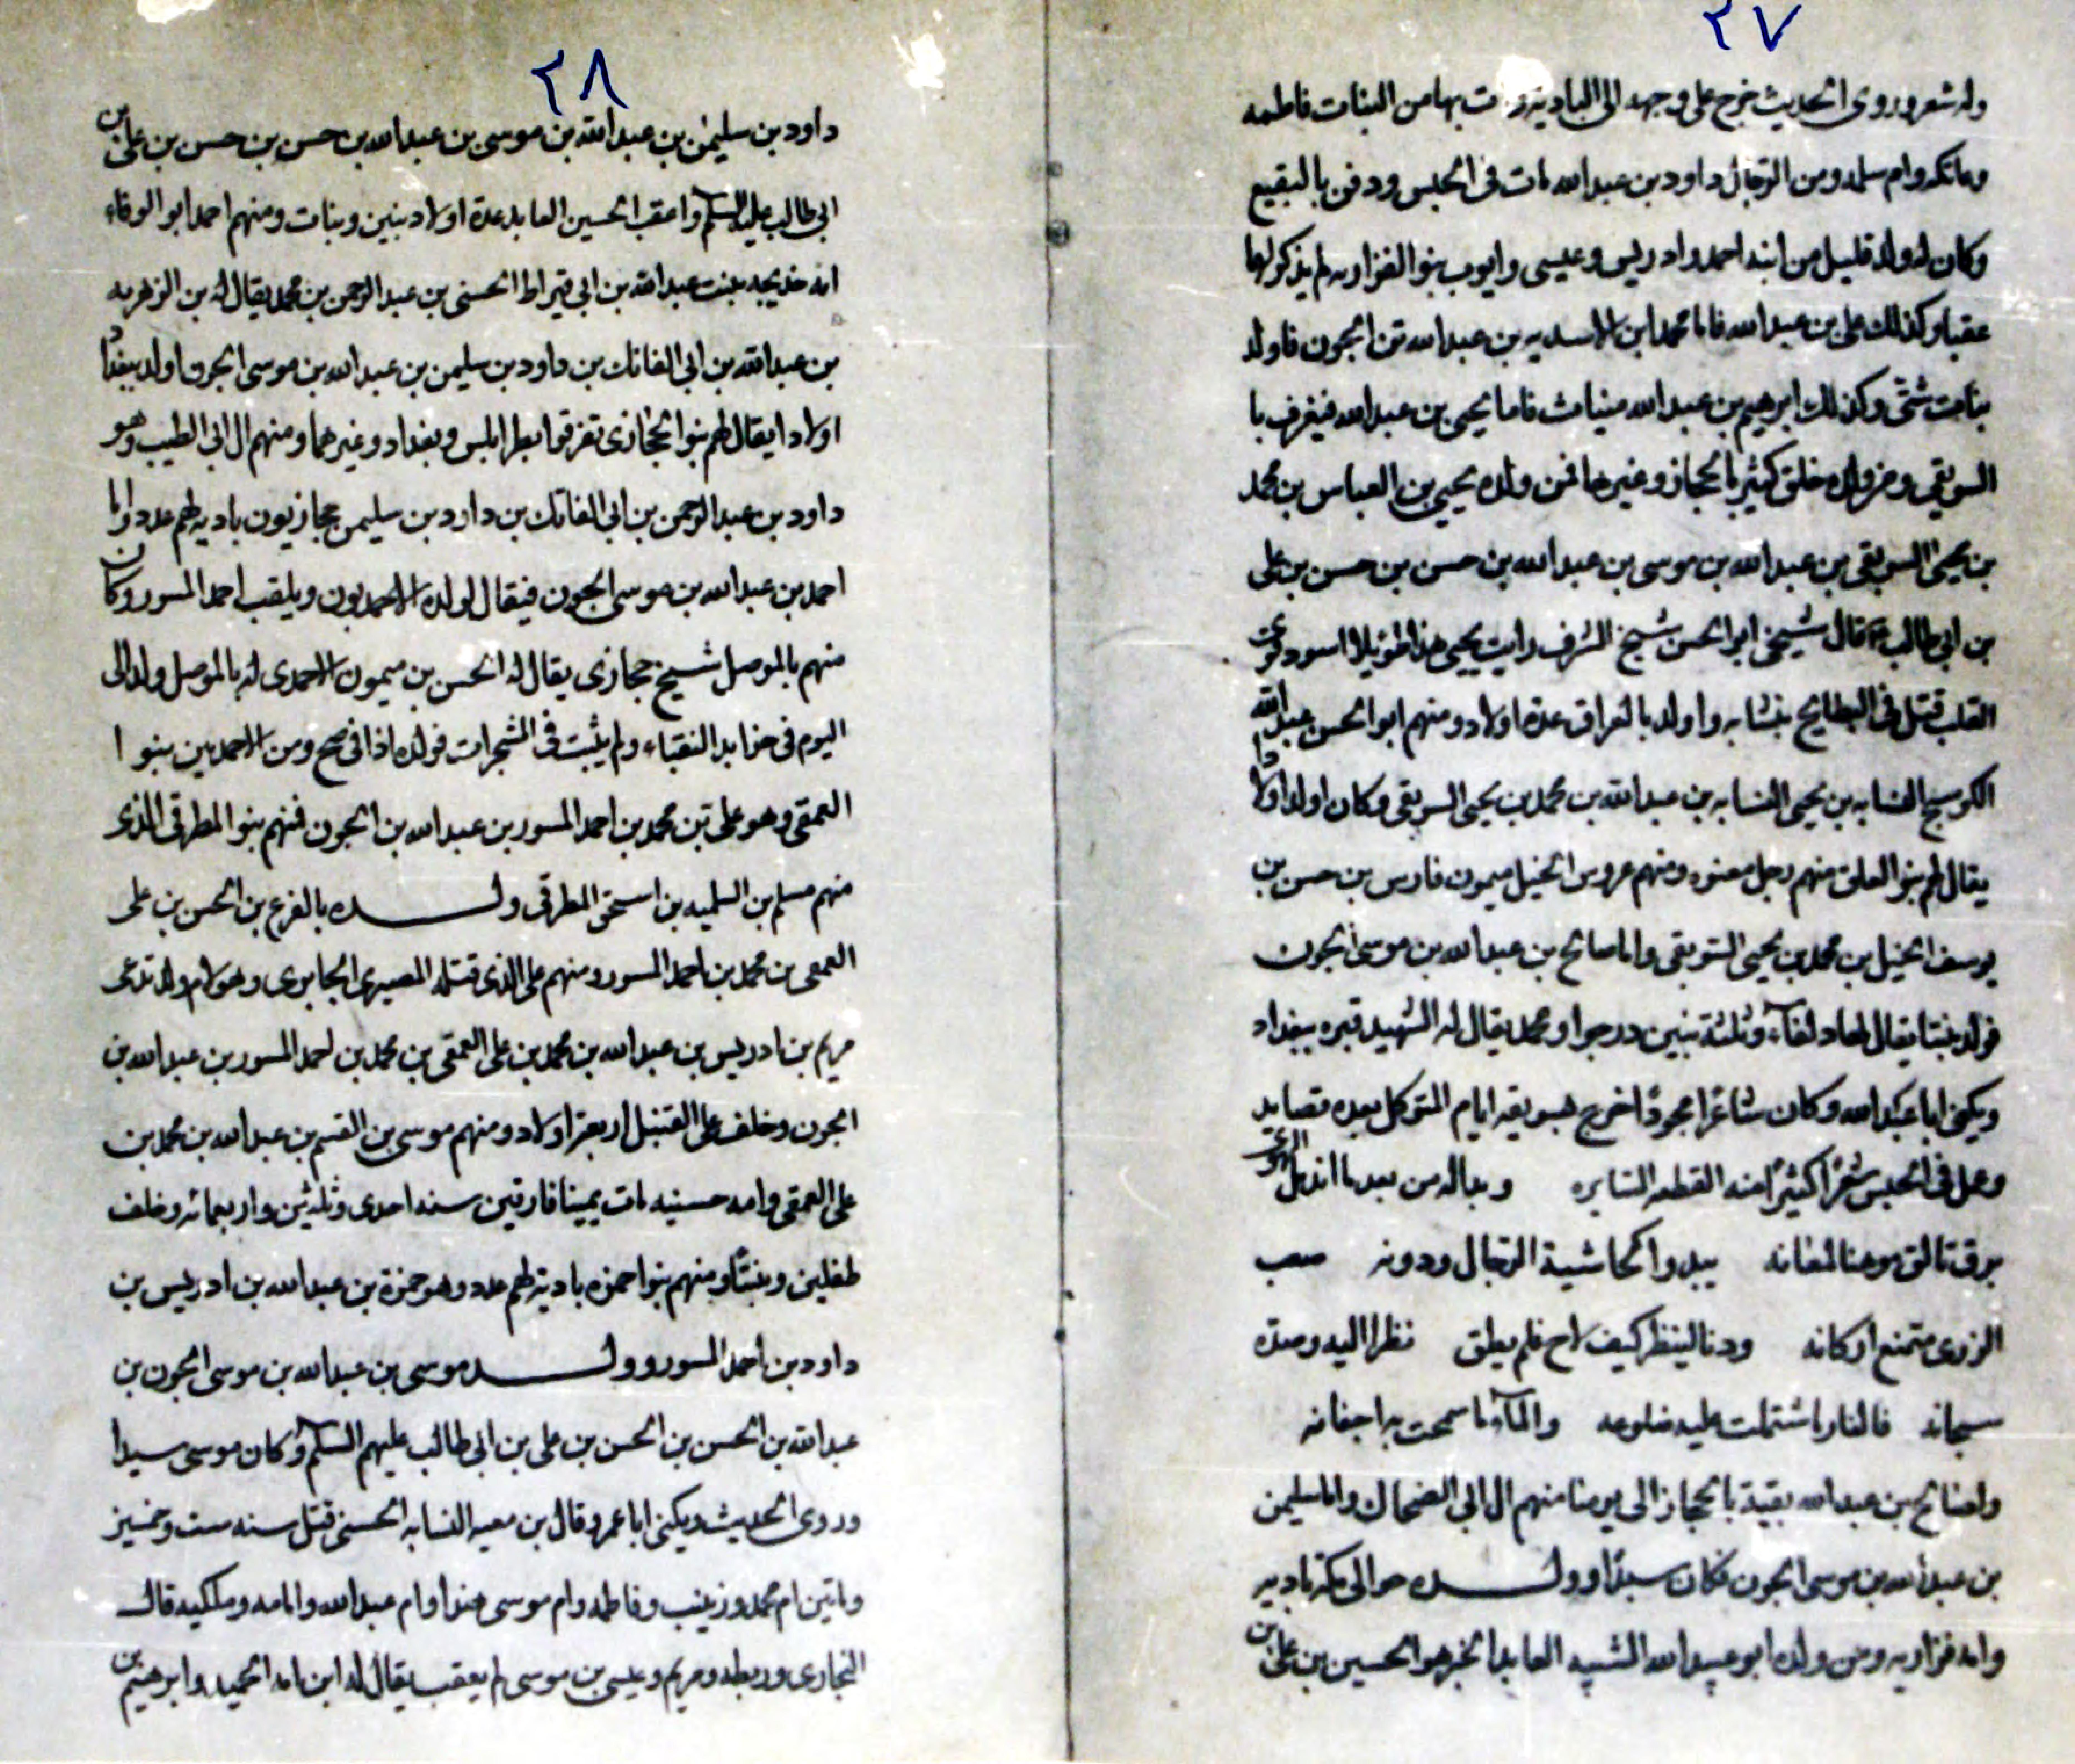 ٢٧
وله شعر وروى الحديث خرج على وجهه الى البادية بها من البنات فاطمه
وعاتكه وام سلمه ومن الرجال داود بن عبد الله مات فى الحبس ودفن بالبقيع
وكان له ولد قليل من ابنه احمد وادريس وعيسى وايوب بنو الفزاريه لم يذكر لهما
عقبا وكذلك على بن عبد الله فاما محمد ابن الاسديه بن عبد الله بن الجون فاولد
بنات شتى وكذلك ابرهيم بن عبد الله ميناث فاما يحيى بن عبد الله فيعرف با
السويقى ومن ولده خلق كثير بالحجاز وغيرها فمن ولده يحيى بن العباس بن محمد
بن يحيى السويقى بن عبد الله بن موسى بن عبد الله بن حسن بن حسن بن على
بن ابى طالب قال شيخى ابو الحسن شيخ الشرف رايت يحيى هذا طويلا اسود
القلب قتل فى البطايح بنشابه واولد بالعراق عدة اولاد ومنهم ابو الحسن عبد الله
الكوسج النسابه بن يحيى النسابه بن عبد الله بن محمد بن يحيى السويقى وكان اولد اولادا
يقال لهم بنو العلق منهم رجل معتوه ومنهم عروس الخيل ميمون فارس بن حسن بن
يوسف الخيل بن محمد بن يحيى السويقى واما صالح بن عبد الله بن موسى الجون
فولد بنتا يقال لها دلفاء وثلثة بنين درجوا ومحمد يقال له الشهيد قبره ببغداد
ويكنى ابا عبد الله وكان شاعرا مجودا اخرج بسويقه ايام المتوكل بعده قصايد
وعمل فى الحبس شعرا كثيرا منه القطعه السايره وبدا له من بعد ما اندمل الهوى
برق تالق موهنا لمعانه يبدو كحاشية الرجال ودونه صعب
الذرى متمنع اركانه ودنا لينظر كيف لاح فلم يطق نظرا اليه وصده
سجانه فالنار ما اشتملت عليه ضلوعه والماء ما سمحت به اجفانه
ولصالح بن عبد الله بقية بالحجاز الى يومنا منهم ال ابى الضحاك واما سليمن
بن عبد الله بن موسى الجون فكان سيدا وولده حوالى مكة باديه
وامه فزاريه ومن ولده ابو عبد الله الشبيه العابد الخير هو الحسين بن على بن
٢٨
داود بن سليمن بن عبد الله بن موسى بن عبد الله بن حسن بن حسن بن على بن
ابى طالب عليه السلم واعقب الحسين العابد عدة اولاد بنين وبنات ومنهم احمد ابو الوفاء
امه خديجه بنت عبد الله بن ابى قيراط الحسنى بن عبد الرحمن بن محمد يقال له بن الزهريه
بن عبد الله بن ابى الفاتك بن داود بن سليمن بن عبد الله بن موسى الجون اولد ببغداد
اولادا يقال لهم بنو الحجازى تفرقوا بطرابلس وبغداد وغيرهما ومنهم ال ابى الطيب وهو
داود بن عبد الرحمن بن ابى الفاتك بن داود بن سليمن حجازيون باديه لهم عدد واما
احمد بن عبد الله بن موسى الجون فيقال لولده الاحمديون ويلقب احمد المسور وكان
منهم بالموصل شيخ حجازى يقال له الحسن بن ميمون الاحمدى له بالموصل ولد الى
اليوم فى جرايد النقباء ولم يثبت فى المشجرات فولده اذا فى صح ومن الاحمديين بنو ا
العمقى وهو على بن محمد بن احمد المسور بن عبد الله بن الجون فمنهم بنو المطرقى الذى
منهم مسلم بن السلميه بن اسحق المطرقى ولده بالفرع بن الحسن بن على
العمقى بن محمد بن احمد المسور ومنهم على الذى قتله المصيرى الجابرى وهو لام ولد تدعى
مريم بن ادريس بن عبد الله بن محمد بن على العمقى بن محمد بن احمد المسور بن عبد الله بن
الجون وخلف على القتيل اربعة اولاد ومنهم موسى بن القسم بن عبد الله بن محمد بن
على العمقى وامه حسنيه مات بميافارقين سنه احدى وثلثين واربعمائه وخلف
طفلين وبنتا ومنهم بنو احمزه بادية لهم عدد وهو حمزة بن عبد الله بن ادريس بن
داود بن احمد المسور وولد موسى بن عبد الله بن موسى الجون بن
عبد الله بن الحسن بن الحسن بن على بن ابى طالب عليهم السلم وكان موسى سيدا
وروى الحديث ويكنى ابا عمر وقال بن معيه النسابه الحسنى قتل سنه ست وخمسين
وماتين ام محمد وزينب وفاطمه وام موسى هندا وام عبد الله وامامه ومليكه قال
البخارى وريطه ومريم وعيسى بن موسى لم يعقب يقال له ابن امه الحميد وابرهيم بن